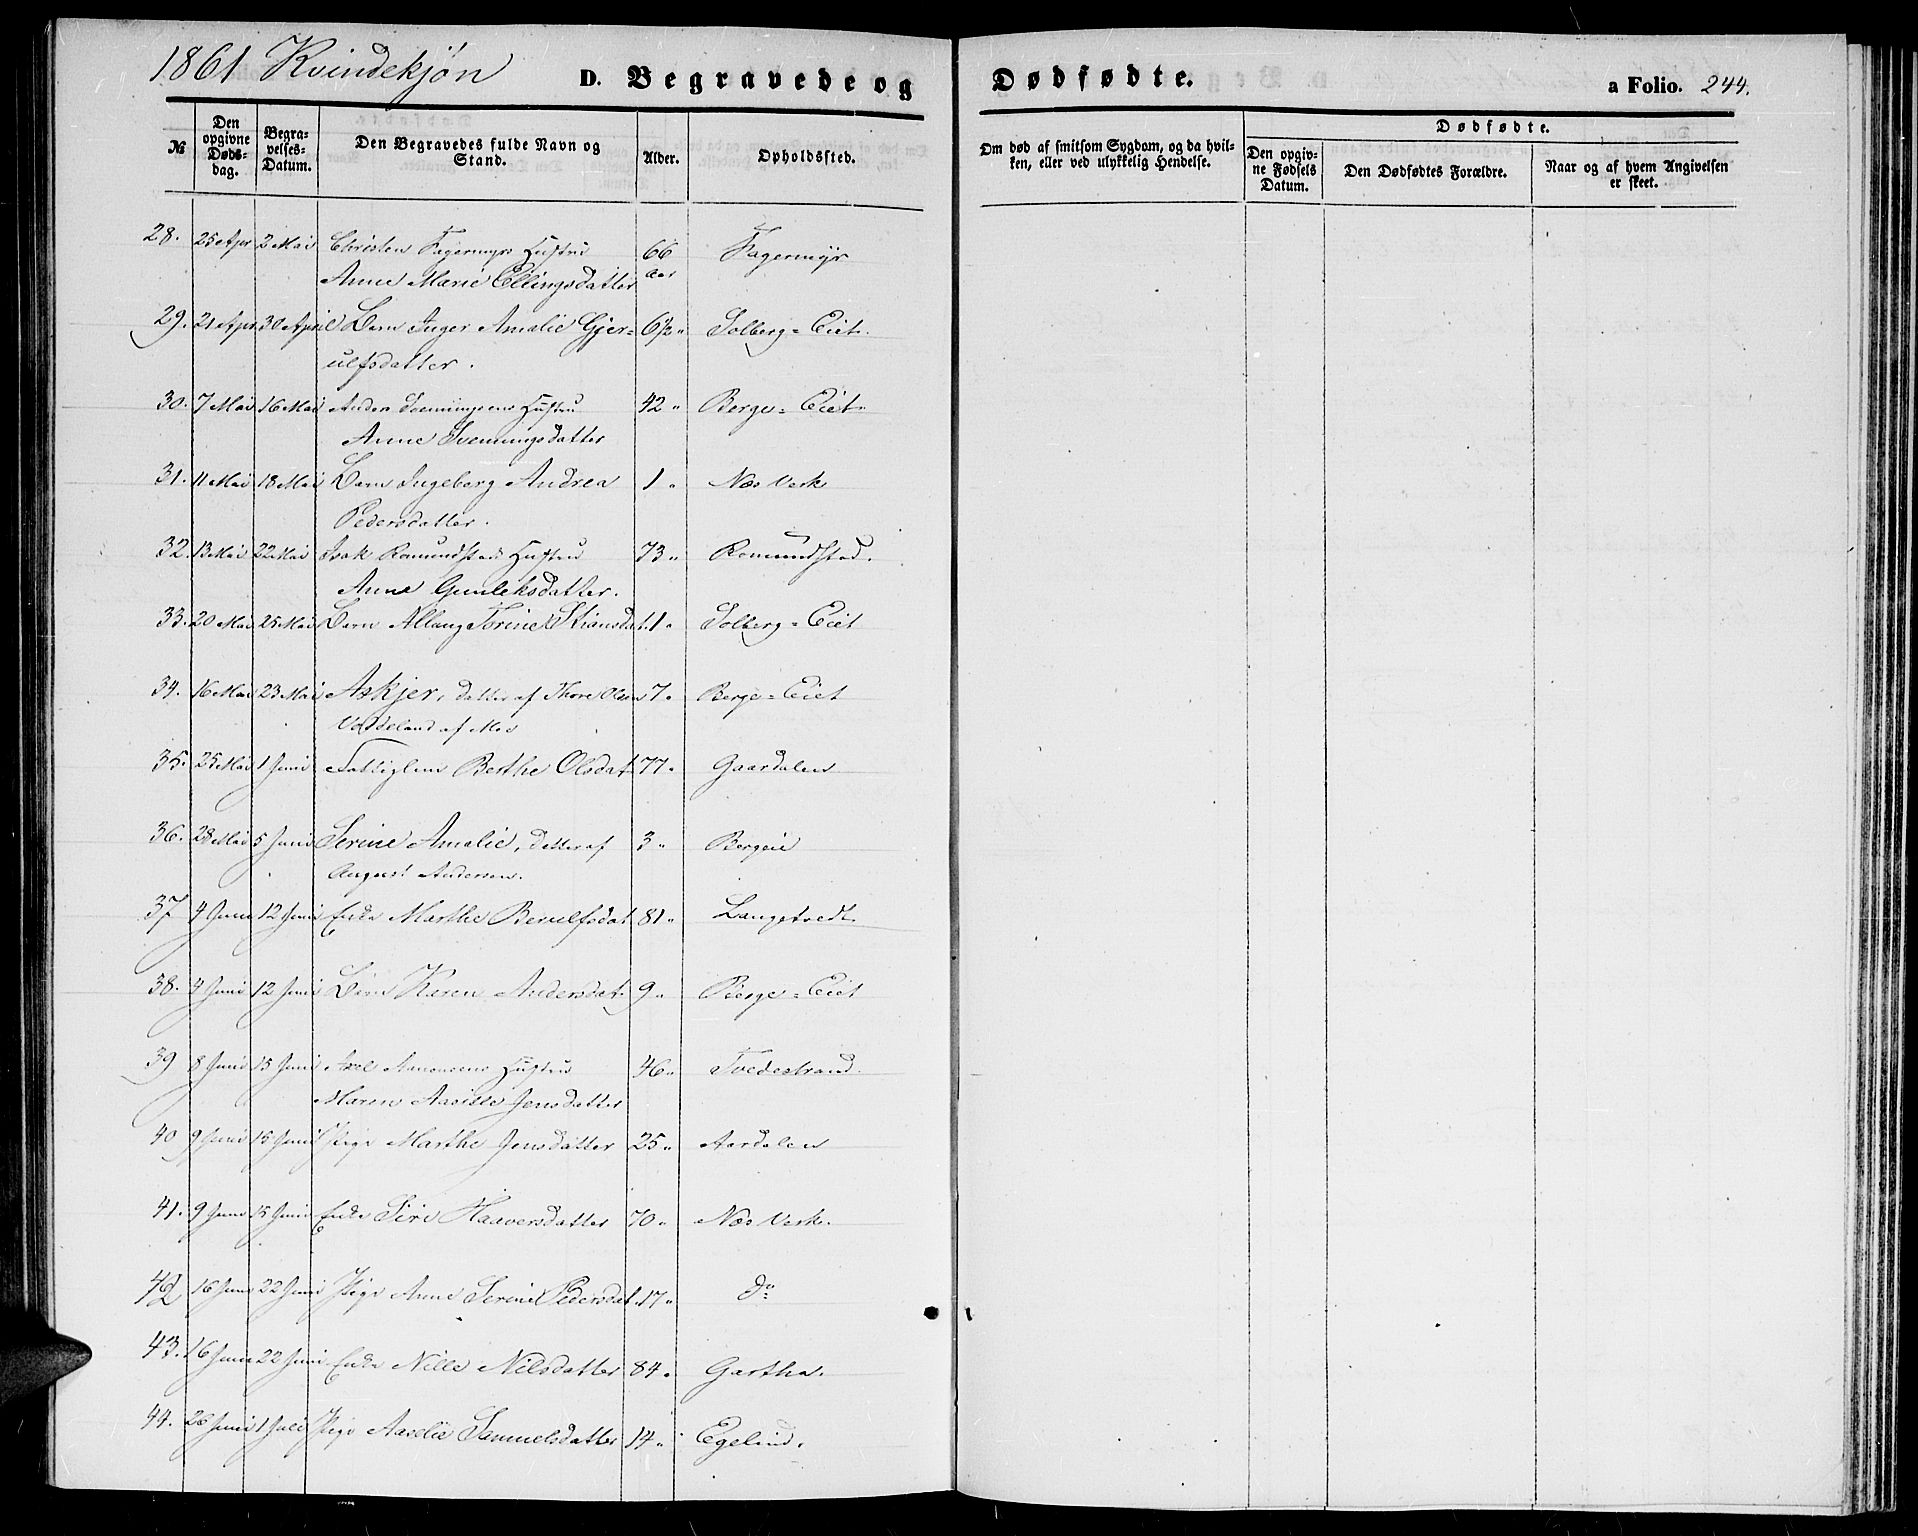 1861 Kvindekjøn D. Begravede og Dødfødte. a Folio. 244.
№ Den opgivne Døds-dag. Begra-velses-Datum. Den Begravedes fulde Navn og Stand. Alder. Opholdssted. Om død af smitsom Sygdom, og da hvil-ken, eller ved ulykkelig Hendelse. Dødfødte. Den opgiv-ne Fødsels Datum. Den Dødfødtes Forældre. Naar og af hvem Angivelsen er skeet.
28. 25 Apr 2 Mai Christen Fagermyrs Hustru 66 Fagermyr
Anne Marie Ellingsdatter aar
29. 21 Apr 30 April Barn Inger Amalie Gjer= 6½ " Solberg=Eiet.
ulfsdatter.
30. 7 Mai 16 Mai Anders Svenningsens Hustru 42 " Berge=Eiet
Anne Svenningsdatter
31. 11 Mai 18 Mai Barn Ingeborg Andrea 1 " Næs Verk
Pedersdatter.
32. 13 Mai 22 Mai Isak Romundstads Hustru 73 " Romundstad.
Anne Gunleksdatter.
33. 20 Mai 25 Mai Barn Allaug Torine Stiansdat. 1 " Solberg=Eiet
34. 16 Mai 23 Mai Askjer, Datter af Thore Olsen 7 " Berge=Eiet
Vardeland af Moe
35. 25 Mai 1 Juni Fattiglem Berthe Olsdat 77 " Gaardalen
36. 28 Mai 5 Juni Serine Amalie, Datter af 3 " Bergeie
August Andersen.
37 4 Juni 12 Juni Enke Marthe Berulfsdat 81 " Langetvedt
38. 4 Juni 12 Juni Barn Karen Andersdat. 9 " Berge=Eiet
39 8 Juni 15 Juni Axel Aanonsens Hustru 46 " Tvedestrand.
Maren Aasille Jensdatter
40 9 Juni 15 Juni Pige Marthe Jensdatter 25 " Aardalen
41. 9 Juni 15 Juni Enke Siri Haaversdatter 70 " Næs Verk.
42 16 Juni 22 Juni Pige Anne Serine Pedersdat. 17 " do
43. 16 Juni 22 Juni Enke Nille Nilsdatter 84 " Gartha.
44. 26 Juni 1 Juli Pige Aaselie Samuelsdatter 14 " Egelind.